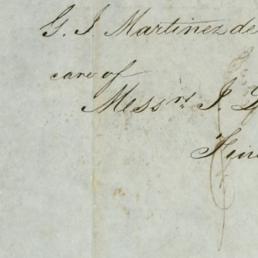 G. J Martinez de
care of
Messrs J